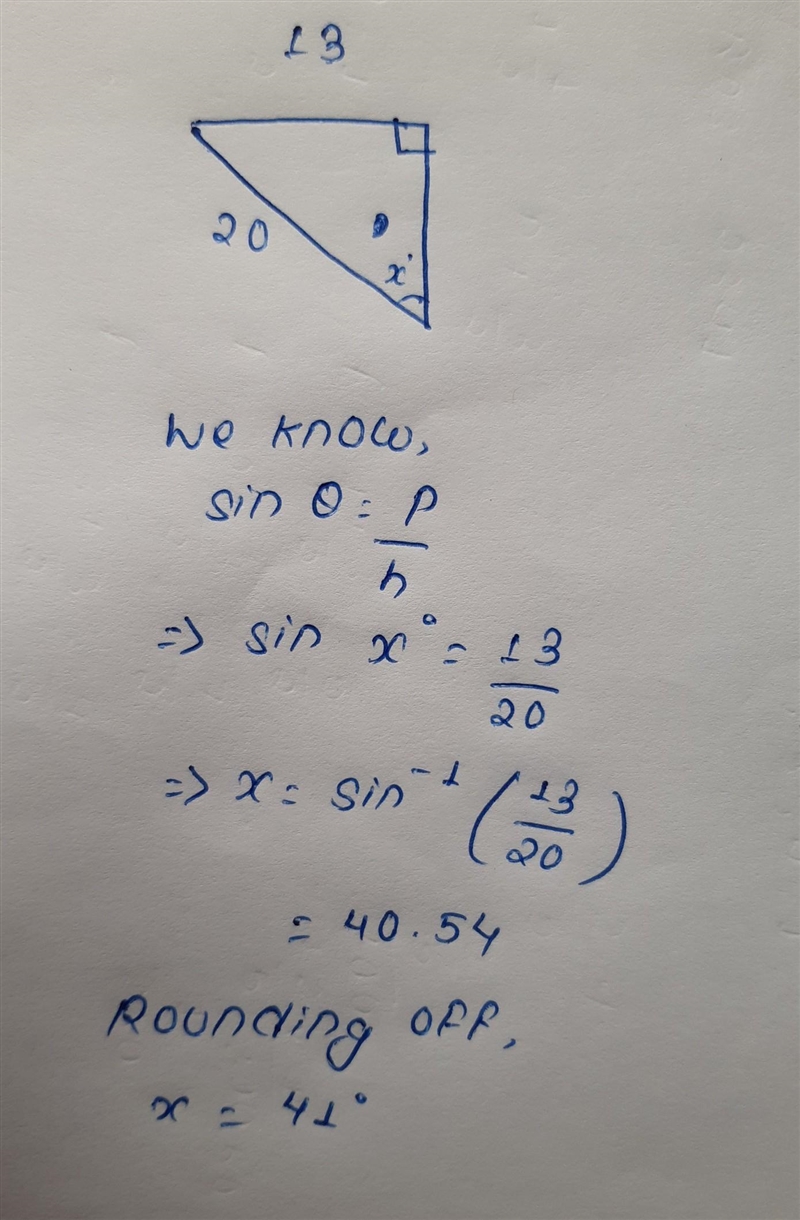 13
20
x°
We know,
sin θ = P/h
=> sin x° = 13/20
=> x = sin⁻¹ (13/20)
= 40.54
Rounding off,
x = 41°